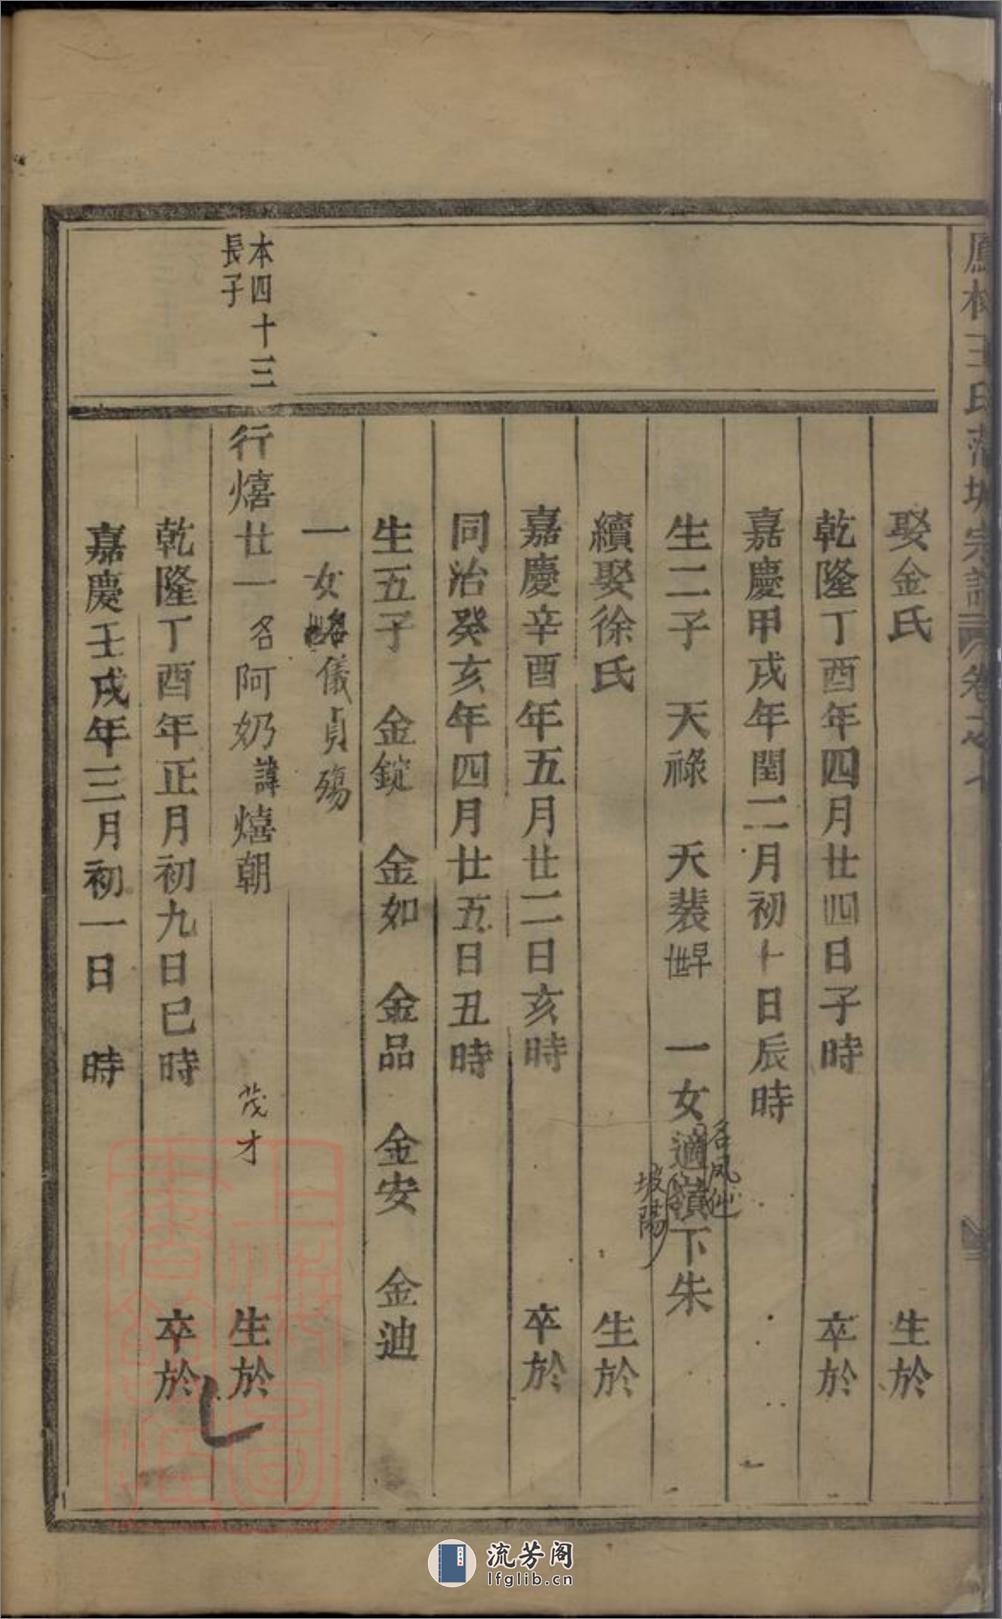 鳳林王氏蒲城宗譜 卷之七
娶金氏 生於
乾隆丁酉年四月廿四日子時 卒於
嘉慶甲戌年閏二月初十日辰時
生二子 天祿 天裴早世 一女適嶺下朱
名鳳仙
坡陽
續娶徐氏 生於
嘉慶辛酉年五月廿二日亥時 卒於
同治癸亥年四月廿五日丑時
生五子 金錠 金如 金品 金安 金迪
一女 儀貞殤
本四十三
長子
行熺廿一名阿奶諱熺朝 茂才 生於
乾隆丁酉年正月初九日巳時 卒於
嘉慶壬戌年三月初一日 時
流芳阁
lfglib.cn